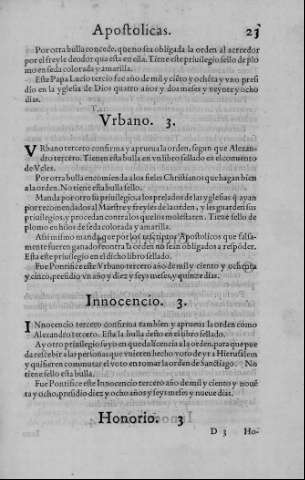 Apostolicas. 23
Por otra bulla concede, que no sea obligada la orden al acreedor
por el freyle deudor que esta en ella. Tiene este priuilegio sello de plo
mo en seda colorada y amarilla.
Este Papa Lucio tercio fue año de mil y ciēto y ochēta y vno presi
dio en la yglesia de Dios quatro años y dos meses y veynte y ocho
dias.
Vrbano. 3.
VRbano tercero confirma y aprueua la orden, segun que Alexan-
dro tercero. Tienen esta bulla en vn libro sellado en el conuento
de Vcles.
Por otra bulla encomienda a los fieles Christianos que hagan bien
a la orden. No tiene esta bulla sello.
Manda por otro su priuilegio, a los prelados de las yglesias q̄ ayan
por recomendado al Maestre y freyles de la orden, y les guarden sus
priuilegios, y procedan contra los que los molestaren. Tiene sello de
plomo en hilos de seda colorada y amarilla.
Assi mismo manda, que por los rescriptos Apostolicos que falsa-
mente fueren ganados contra la orden no sean obligados a respōder.
Esta este priuilegio en el dicho libro sellado.
Fue Pontifice este Vrbano tercero año de mil y ciento y ochenta
y cinco, presidio vn año y diez y seys meses, y quinze dias.
Innocencio. 3.
INnocencio tercero confirma tambien y aprueua la orden como
Alexandro tercero. Esta la bulla desto en el libro sellado.
Ay otro priuilegio suyo en que da licencia a la orden, para que pue
da rescebir a las personas que vuieren hecho voto de yr a Hierusalem
y quisieren commutar el voto en tomar la orden de Sanctiago. No
tiene sello esta bulla.
Fue Pontifice este Innocencio tercero año de mil y ciento y noue
ta y ocho, presidio diez y ocho años y seys meses y nueue dias.
Honorio. 3
D 3 Ho-